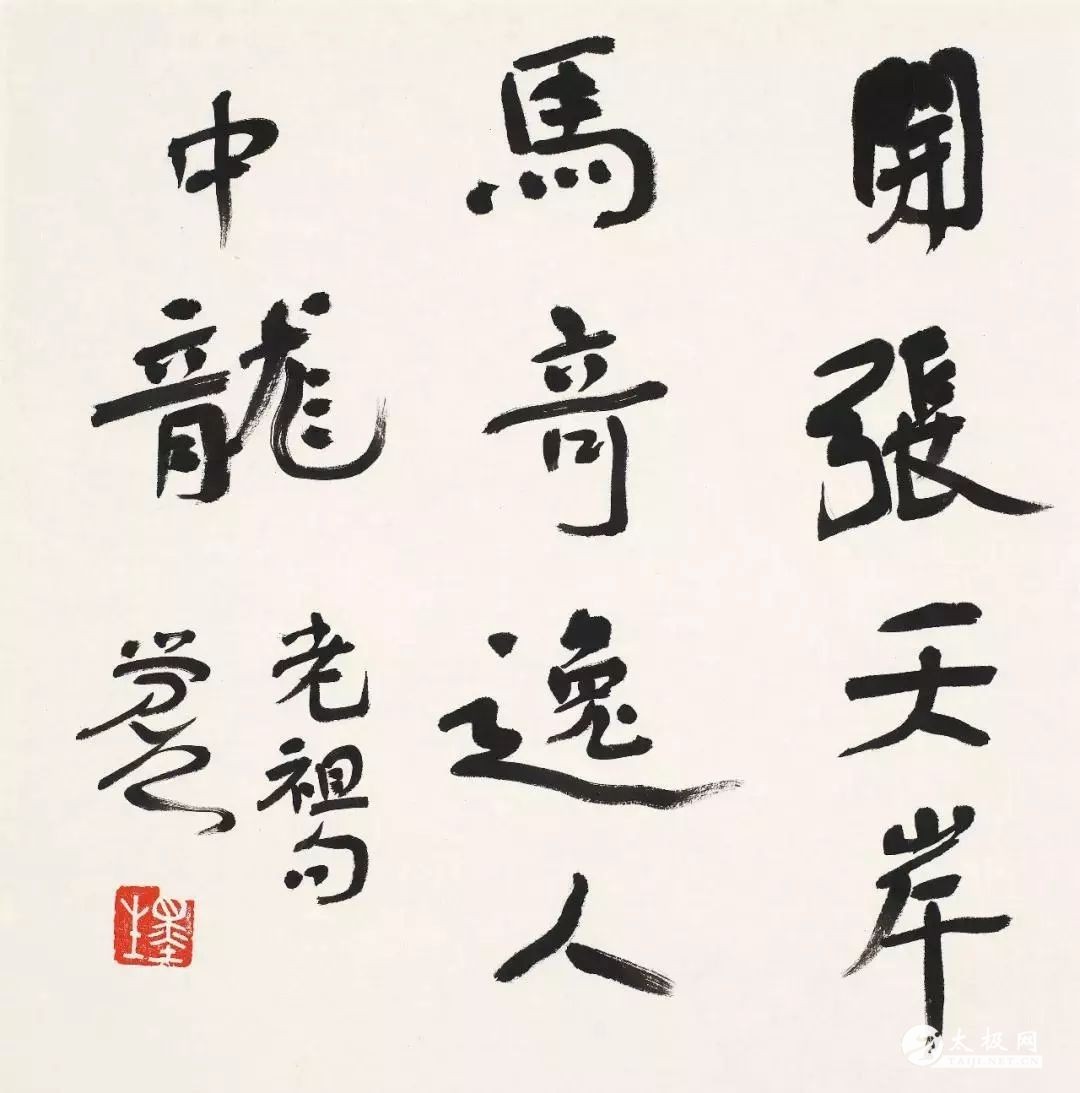 開張天岸
馬奇逸人
中龍
老祖句
太极网
TAIJI.NET.CN